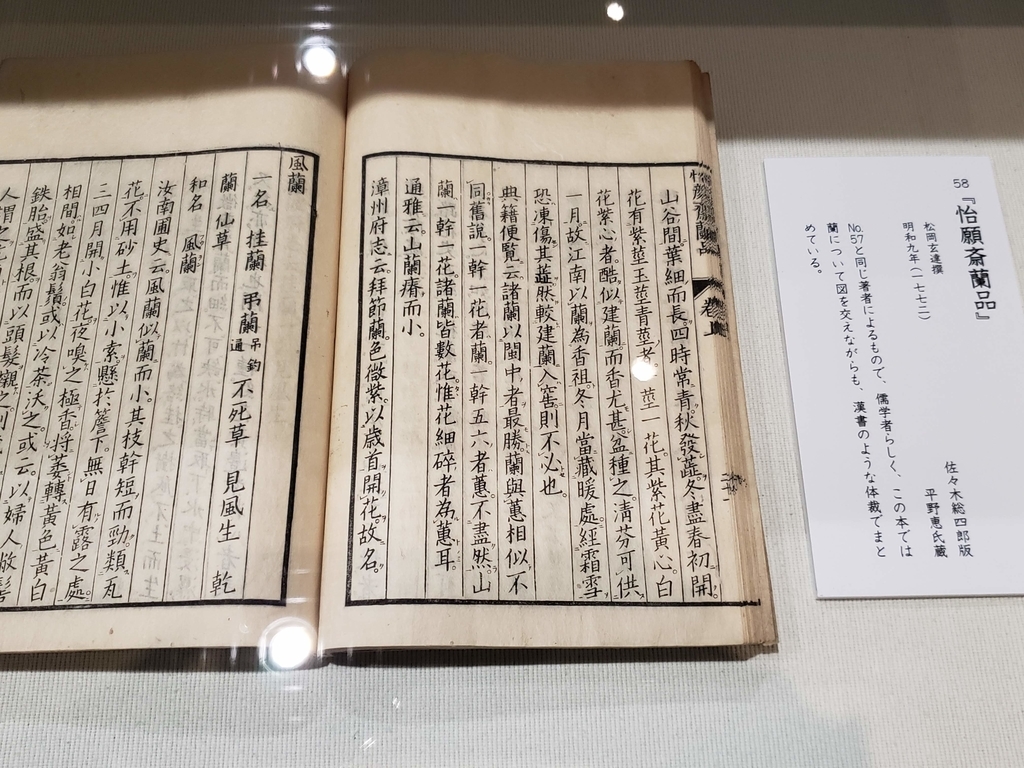 58
『怡顔斎蘭品』
松岡玄達撰
佐々木総四郎版
明和九年(一七七二)
平野恵氏蔵
No.57と同じ著者によるもので、儒学者らしく、この本では
蘭について図を交えながらも、漢書のような体裁でまと
めている。
山谷間葉細而長四時常青秋發蕋冬盡春初開
花有紫莖玉莖青莖者一莖一花其紫花黃心白
花紫心者酷似建蘭而香尤甚盆種之清芬可供
一月故江南以蘭為香祖冬月當藏暖處經霜雪
恐凍傷其蕋然較建蘭入窖則不必也
典籍便覧云諸蘭以閩中者最勝蘭與蕙相似不
同舊說一幹一花者蘭一幹五六者蕙不盡然山
蘭一幹一花諸蘭皆數花惟花細碎者為蕙耳
通雅云山蘭瘠而小
漳州府志云拜節蘭色微紫以歲首開花故名
風蘭
一名 挂蘭 弔蘭 吊鈎通 不死草 見風生 乾
蘭 仙草
和名 風蘭
汝南圃史云風蘭似蘭而小其枝幹短而勁類瓦
花不用砂土惟以小索懸於簷下無日有露之處
三四月開小白花夜嗅之極香將萎轉黃色黃白
相間如老翁鬚或以冷茶沃之或云以婦人敝髻
鐵胎盛其根而以頭髮襯之則
人謂之